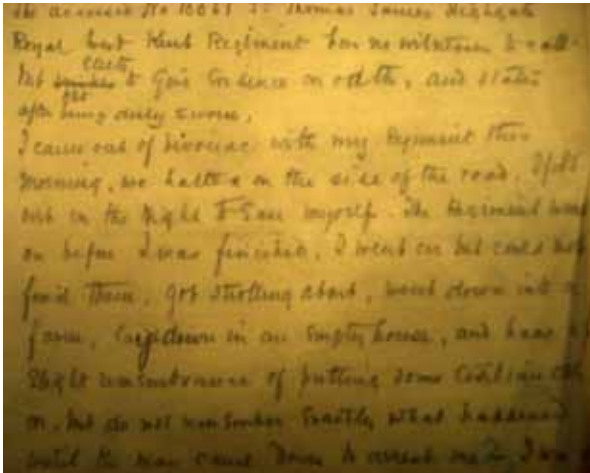 The accused No 10061 Pte Thomas James Highgate
Royal West Kent Regiment has no witnesses to call
but elects to give Evidence on oath, and states
after being duly sworn,
I came out of bivouac with my Regiment this
morning, we halted on the side of the road. I fell
out in the to ease myself. The Regiment went
on before I was finished, I went on but could not
find them, got strolling about, went down into a
farm, lay down in an empty house, and have a
slight remembrance of putting some civilian
on, but do not remember exactly what happened
until the man came down to arrest me